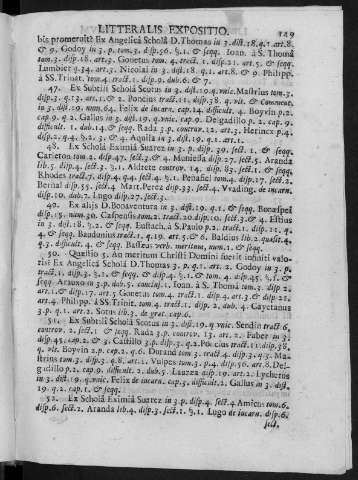 LITTERALIS EXPOSITIO. 149
bis promeruit? Ex Angelicâ Scholâ D. Thomas in 3. dist. 18. q. 1. art. 8.
& 9. Godoy in 3. p. tom. 3. disp. 56. §. 1. & seqq. Ioan. à S. Thomâ
tom. 3. disp. 18. art. 3. Gonetus tom. 4. tract. 1. disp. 21. art. 5. & seqq.
Lumbier q. 34. art. 3. Nicolai in 3. dist. 18. q. 1. art. 8. & 9. Philipp.
à SS. Trinit. tom. 4. tract. 1. disp. 9. dub. 6. & 7.
47. Ex Subtili Scholâ Scotus in 3. dist. 19. q. vnic. Mastrius tom. 3.
disp. 3. q. 13. art. 1. & 2. Poncius tract. 11. disp. 38. q. vlt. & Comment.
in 3. dist. 19. num. 64. Felix de Incarn. cap. 14. difficult. 4. Boyvin p. 2.
cap. 9. q. 2. Gallus in 3. dist. 19. q. vnic. cap. 9. Delgadillo p. 2. cap. 9.
difficult. 1. dub. 14. & seqq. Rada 3. p. controv. 12. art. 3. Herincx p. 4.
disp. 2. q. 4. §. 2. 3. & 4. Aquila in 3. dist. 19. q. 1. art. 1.
48. Ex Scholâ Eximiâ Suarez in 3. p. disp. 39. sect. 1. & seqq.
Carleton tom. 2. disp. 47. sect. 3. & 4. Muniessa disp. 27. sect. 5. Aranda
lib. 5. disp. 4. sect. 3. §. 1. Aldrete controv. 14. disp. 83. sect. 1. & seqq.
Rhodes tract. 7. disp. 4. q. 4. sect. 4. §. 1. Peñafiel tom. 4. tract. 1. disp. 17.
Bernal disp. 55. sect. 4. Mart. Perez disp. 33. sect. 4. Wading. de incarn.
disp. 10. dub. 7. Lugo disp. 27. sect. 3.
49. Ex alijs D. Bonaventura in 3. dist. 19. q. 1. & seqq. Bonæspei
disp. 15. num. 30. Caspensis tom. 2. tract. 20. disp. 10. sect. 3. & 4. Estius
in 3. dist. 18. §. 2. & seqq. Eustach. à S. Paulo p. 2. tract. 1. disp. 2. q.
4. & seqq. Baudunius tract. 1. q. 19. art. 5. & 6. Baldius lib. 2. quæst. 4.
q. 3. difficult. 4. & seqq. Basseus verb. meritum, num. 1. & seqq.
50. Quæstio 5. An meritum Christi Domini fuerit infiniti valo-
ris? Ex Angelicâ Scholâ D. Thomas 3. p. q. 1. art. 2. Godoy in 3. p.
tract. 1. disp. 3. §. 2. & seqq. & disp. 4. §. 1. & seqq. & tom. 4. disp. 45. §. 1. &
seqq. Arauxo in 3. p. dub. 5. conclus. 1. Ioan. à S. Thomâ tom. 3. disp. 2.
art. 1. & disp. 17. art. 5. Gonetus tom. 4. tract. 1. disp. 4. art. 3. & disp. 21.
art. 4. Philipp. à SS. Trinit. tom. 4. tract. 1. disp. 2. dub. 4. Gayetanus
3. p. q. 1. art. 2. Sotus lib. 3. de grat. cap. 6.
51. Ex Subtili Scholâ Scotus in 3. dist. 19. q. vnic. Sendin tract. 6.
controv. 2. sect. 1. & seqq. Rada 3. p. controv. 13. art. 2. Faber in 3.
disp. 45. cap. 2. & 3. Castillo 3. p. disp. 3. q. 2. Poncius tract. 11. disp. 38.
q. vlt. Boyvin 2. p. cap. 2. q. 6. Durand tom. 3. tract. 4. disp. 3. q. 3. Ma-
strius tom. 3. disp. 3. q. 8. art. 1. Vulpes tom. 3. p. 4. disp. 56. art. 8. Del-
gadillo p. 2. cap. 9. difficult. 2. dub. 5. Laurea disp. 19. art. 2. Lychetus
in 3. dist. 19. q. vnic. Felix de incarn. cap. 5. difficult. 2. Gallus in 3. dist.
19. q. 2. cap. 1. & seqq.
52. Ex Scholâ Eximiâ Suarez in 3. p. disp. 4. sect. 4. Amicus tom. 6.
disp. 6. sect. 2. Aranda lib. 4. disp. 3. sect. 1. §. 1. Lugo de incarn. disp. 6.
sect.